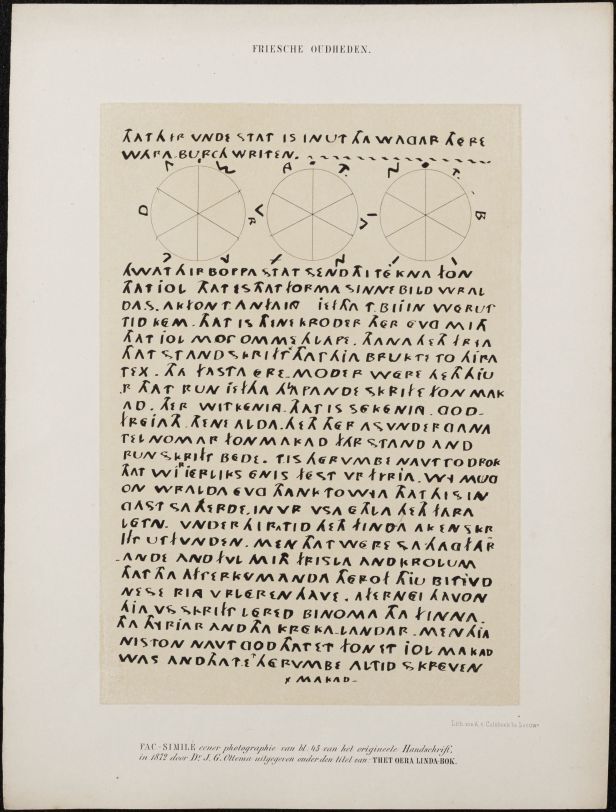 FRIESCHE OUDHEDEN.
THAT HIR VNDE STAT IS IN UT THA WAGAR THERE
WARA BURCH WRITEN.
W A R
D R V I B
R V N
HWAT HIR BOPPA STAT SEND THI TEKNA FON
THAT JOL. THAT IS THAT FORMA SINNEBILD WRAL
DAS. AK FON T ANFANG IEFTHA T.BIJIN WERUT
TID KEM. THAT IS THENE KRODER THER EVG MITH
THAT JOL MOT OMMEHLAPE. THANA HETH FREIA
THAT STANDSKRIFT THAT HIA BRUKTE TO HIRA
TEX. THA FASTA ERE-MODER WERE HETH HIU
.R THAT RUN IEFTHA HLAPANDE SKRIFT FON MAK
AD. THER WITKENIG. THAT IS SEKENIG. GOD-
FREIATH. THENE ALDA. HETH THER ASVNDERGANA
TELNOMAR FON MAKAD FAR STAND AND
RUNSKRIFT BEDE. T IS THERVMBE NAVT TO DROK
THAT WI IERLIKS ENIS FEST VR FYRIA. WY MUG
ON WRALDA EVG THANK TO WYA THAT HI SIN
GAST SA HERDE. IN VR VSA ETHLA HETH FARA
LETN. VNDER HIRA TID HETH FINDA AK EN SKR
IFT UTFUNDEN. MEN THAT WERE SA HAGFAR
.ANDE AND FUL MITH FRISLA AND KROLUM
THAT THA AFTERKVMANDA THEROF THIU BITIVD
NESE RING VRLEREN HAVE. AFTERNEI HAVON
HIA VS SKRIFT LERED BINOMA THA FINNA.
THA THYRIAR AND THA KREKA-LANDAR. MEN HIA
NISTON NAVT GOD THAT ET FON ET JOL MAKAD
WAS AND THAT.ET THERVMBE ALTID SKREVEN
× MAKAD-
Lith. van A. v. Calebeek te Leeuw.
FAC-SIMILÉ eener photographie van bl. 45 van het origineele Handschrift,
in 1872 door Dr. J. G. Ottema uitgegeven onder den titel van: THET OERA LINDA-BOK.